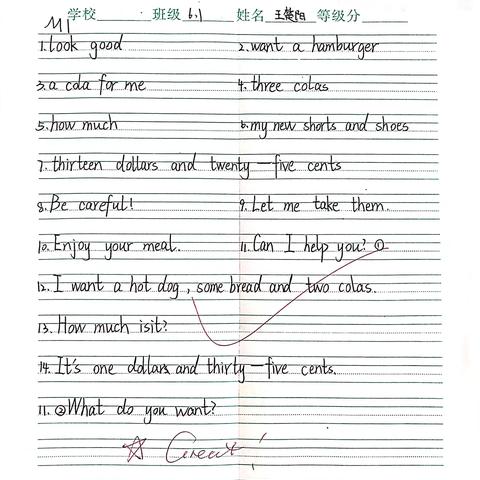 学校 班级 6.1 姓名 王楚阳 等级分
M1
1. look good 2. want a hamburger
3. a cola for me 4. three colas
5. how much 6. my new shorts and shoes
7. thirteen dollars and twenty—five cents
8. Be careful! 9. Let me take them.
10. Enjoy your meal. 11. Can I help you? ①
12. I want a hot dog, some bread and two colas.
13. How much isit?
14. It's one dollars and thirty—five cents.
11. ②What do you want?
☆ Great!